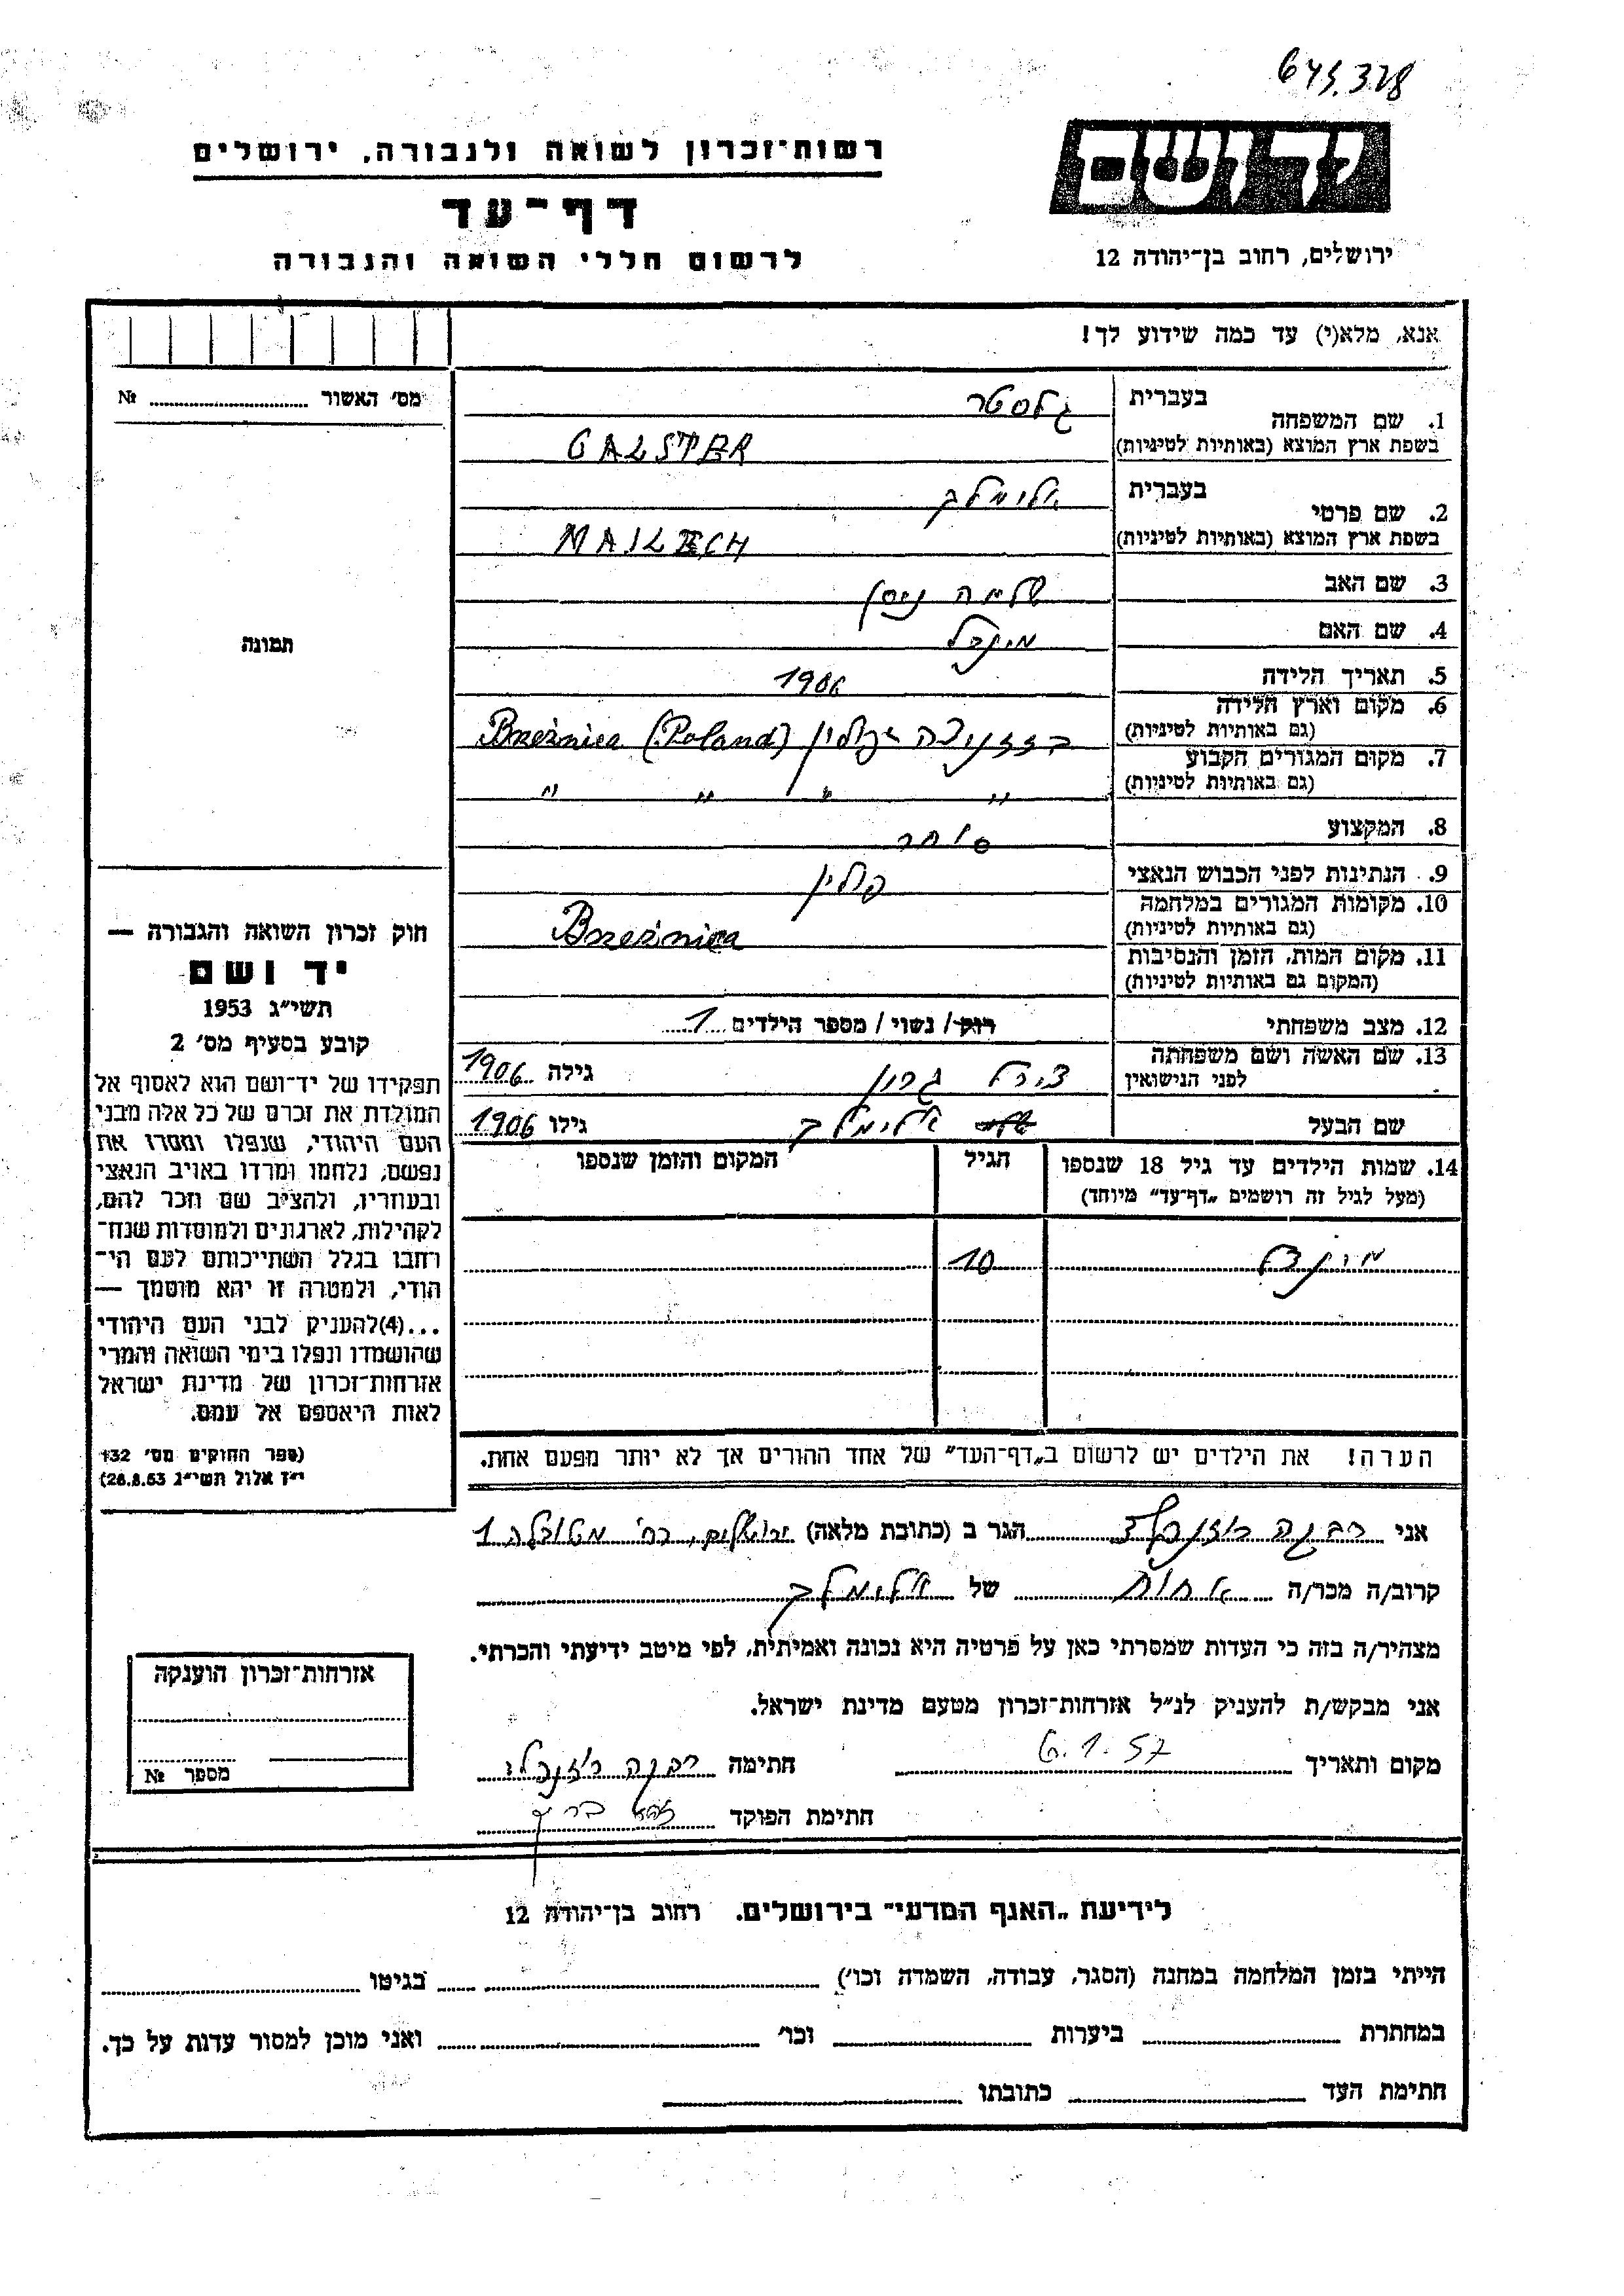 645.328
יד ושם
רשות־זכרון לשואה ולגבורה, ירושלים
דף־עד
לרשום חללי השואה והגבורה
ירושלים, רחוב בן־יהודה 12
אנא, מלא(י) עד כמה שידוע לך!
מס׳ האשור № ........
1. שם המשפחה בעברית גלסטר
בשפת ארץ המוצא (באותיות לטיניות) GALSTER
2. שם פרטי בעברית אלימלך
בשפת ארץ המוצא (באותיות לטיניות) MAILECH
3. שם האב שלמה ניסן
4. שם האם
5. תאריך הלידה 1906
6. מקום וארץ הלידה (גם באותיות לטיניות) בזז'ניצה Brzeźnica (Poland)
7. מקום המגורים הקבוע (גם באותיות לטיניות) " " " "
8. המקצוע סוחר
9. הנתינות לפני הכבוש הנאצי פולין
10. מקומות המגורים במלחמה (גם באותיות לטיניות) Brzeźnica
11. מקום המות, הזמן והנסיבות (המקום גם באותיות לטיניות)
12. מצב משפחתי רוק / נשוי / מספר הילדים 1
13. שם האשה ושם משפחתה לפני הנישואין צירל גרון גילה 1906
שם הבעל אלימלך גילו 1906
14. שמות הילדים עד גיל 18 שנספו הגיל המקום והזמן שנספו
(מעל לגיל זה רושמים „דף־עד״ מיוחד)
מינדל 10
הערה! את הילדים יש לרשום ב„דף־העד״ של אחד ההורים אך לא יותר מפעם אחת.
תמונה
חוק זכרון השואה והגבורה —
יד ושם
תשי״ג 1953
קובע בסעיף מס׳ 2
תפקידו של יד־ושם הוא לאסוף אל
המולדת את זכרם של כל אלה מבני
העם היהודי, שנפלו ומסרו את
נפשם, נלחמו ומרדו באויב הנאצי
ובעוזריו, ולהציב שם וזכר להם,
לקהילות, לארגונים ולמוסדות שנח־
רחבו בגלל השתייכותם לעם הי־
הודי, ולמטרה זו יהא מוסמך —
...(4)להעניק לבני העם היהודי
שהושמדו ונפלו בימי השואה והמרי
אזרחות־זכרון של מדינת ישראל
לאות היאספם אל עמם.
(ספר החוקים מס׳ 132
י״ז אלול תשי״ג 28.8.53)
אני רבקה רוזנפלד הגר ב (כתובת מלאה) ירושלים, רח׳ 1
קרוב/ה מכר/ה אחות של אלימלך
מצהיר/ה בזה כי העדות שמסרתי כאן על פרטיה היא נכונה ואמיתית, לפי מיטב ידיעתי והכרתי.
אני מבקש/ת להעניק לנ״ל אזרחות־זכרון מטעם מדינת ישראל.
מקום ותאריך 6.1.57 חתימה רבקה רוזנפלד
חתימת הפוקד
אזרחות־זכרון הוענקה
מספר №
לידיעת „האגף המדעי״ בירושלים. רחוב בן־יהודה 12
הייתי בזמן המלחמה במחנה (הסגר, עבודה, השמדה וכו׳) בגיטו
במחתרת ביערות וכו׳ ואני מוכן למסור עדות על כך.
חתימת העד כתובתו